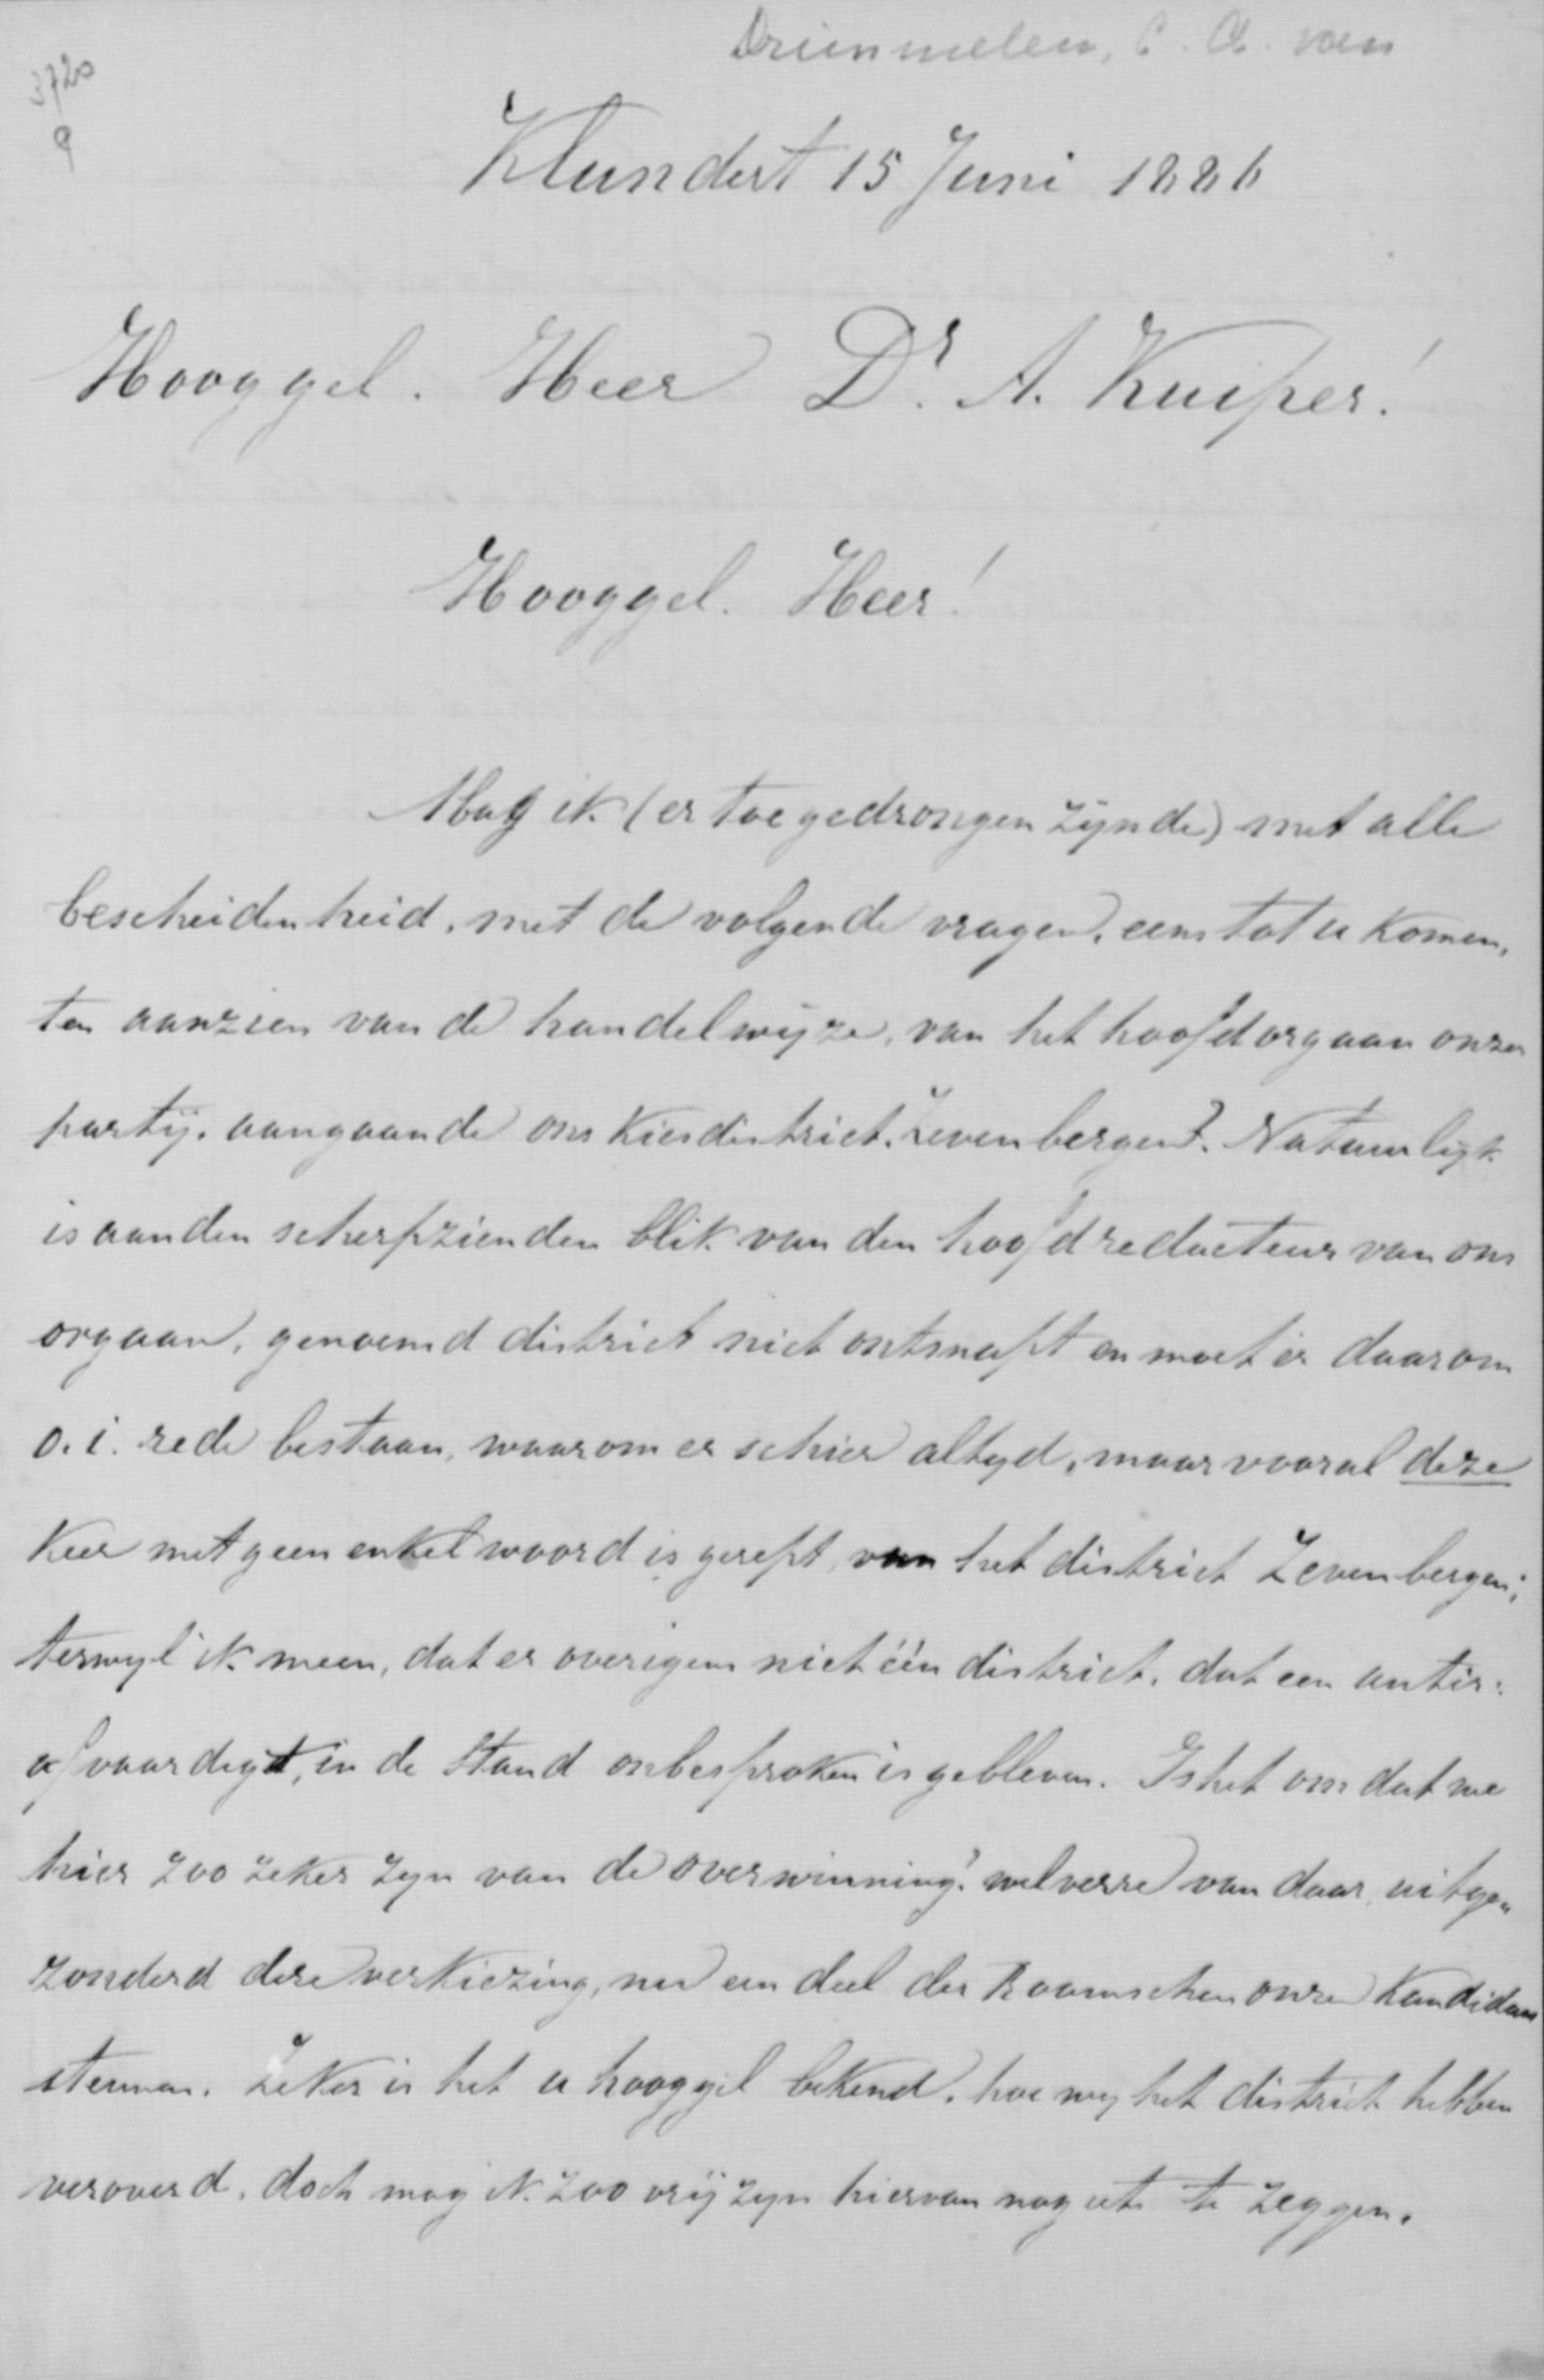 Driemmelen, C. A. van
3720
9
Klundert 15 Juni 1886
Hooggel. Heer Dr. A. Kuiper!
Hooggel. Heer!
Mag ik (er toe gedrongen zijnde) met alle
bescheidenheid, met de volgende vragen, eens tot u komen,
ten aanzien van de handelwijze, van het hoofdorgaan onzer
partij, aangaande ons kiesdistrict, Zevenbergen? Natuurlijk
is aan den scherpzienden blik van den hoofdredacteur van ons
orgaan, genoemd district niet ontsnapt en moet er daarom
o. i. rede bestaan, waarom er schier altyd, maar vooral deze
keer met geen enkel woord is gerept, van het district Zevenbergen;
terwyl ik meen, dat er overigens niet één district, dat een antir:
afvaardigt, in de Stand onbesproken is gebleven. Is het omdat we
hier zoo zeker zyn van de overwinning? wel verre van daar, uitge„
zonderd deze verkiezing, nu een deel der Roomschen onze Kandidaat
stemmen. Zeker is het u hooggel bekend, hoe wy het district hebben
veroverd, doch mag ik zoo vrij zyn hiervan nog iets te zeggen.